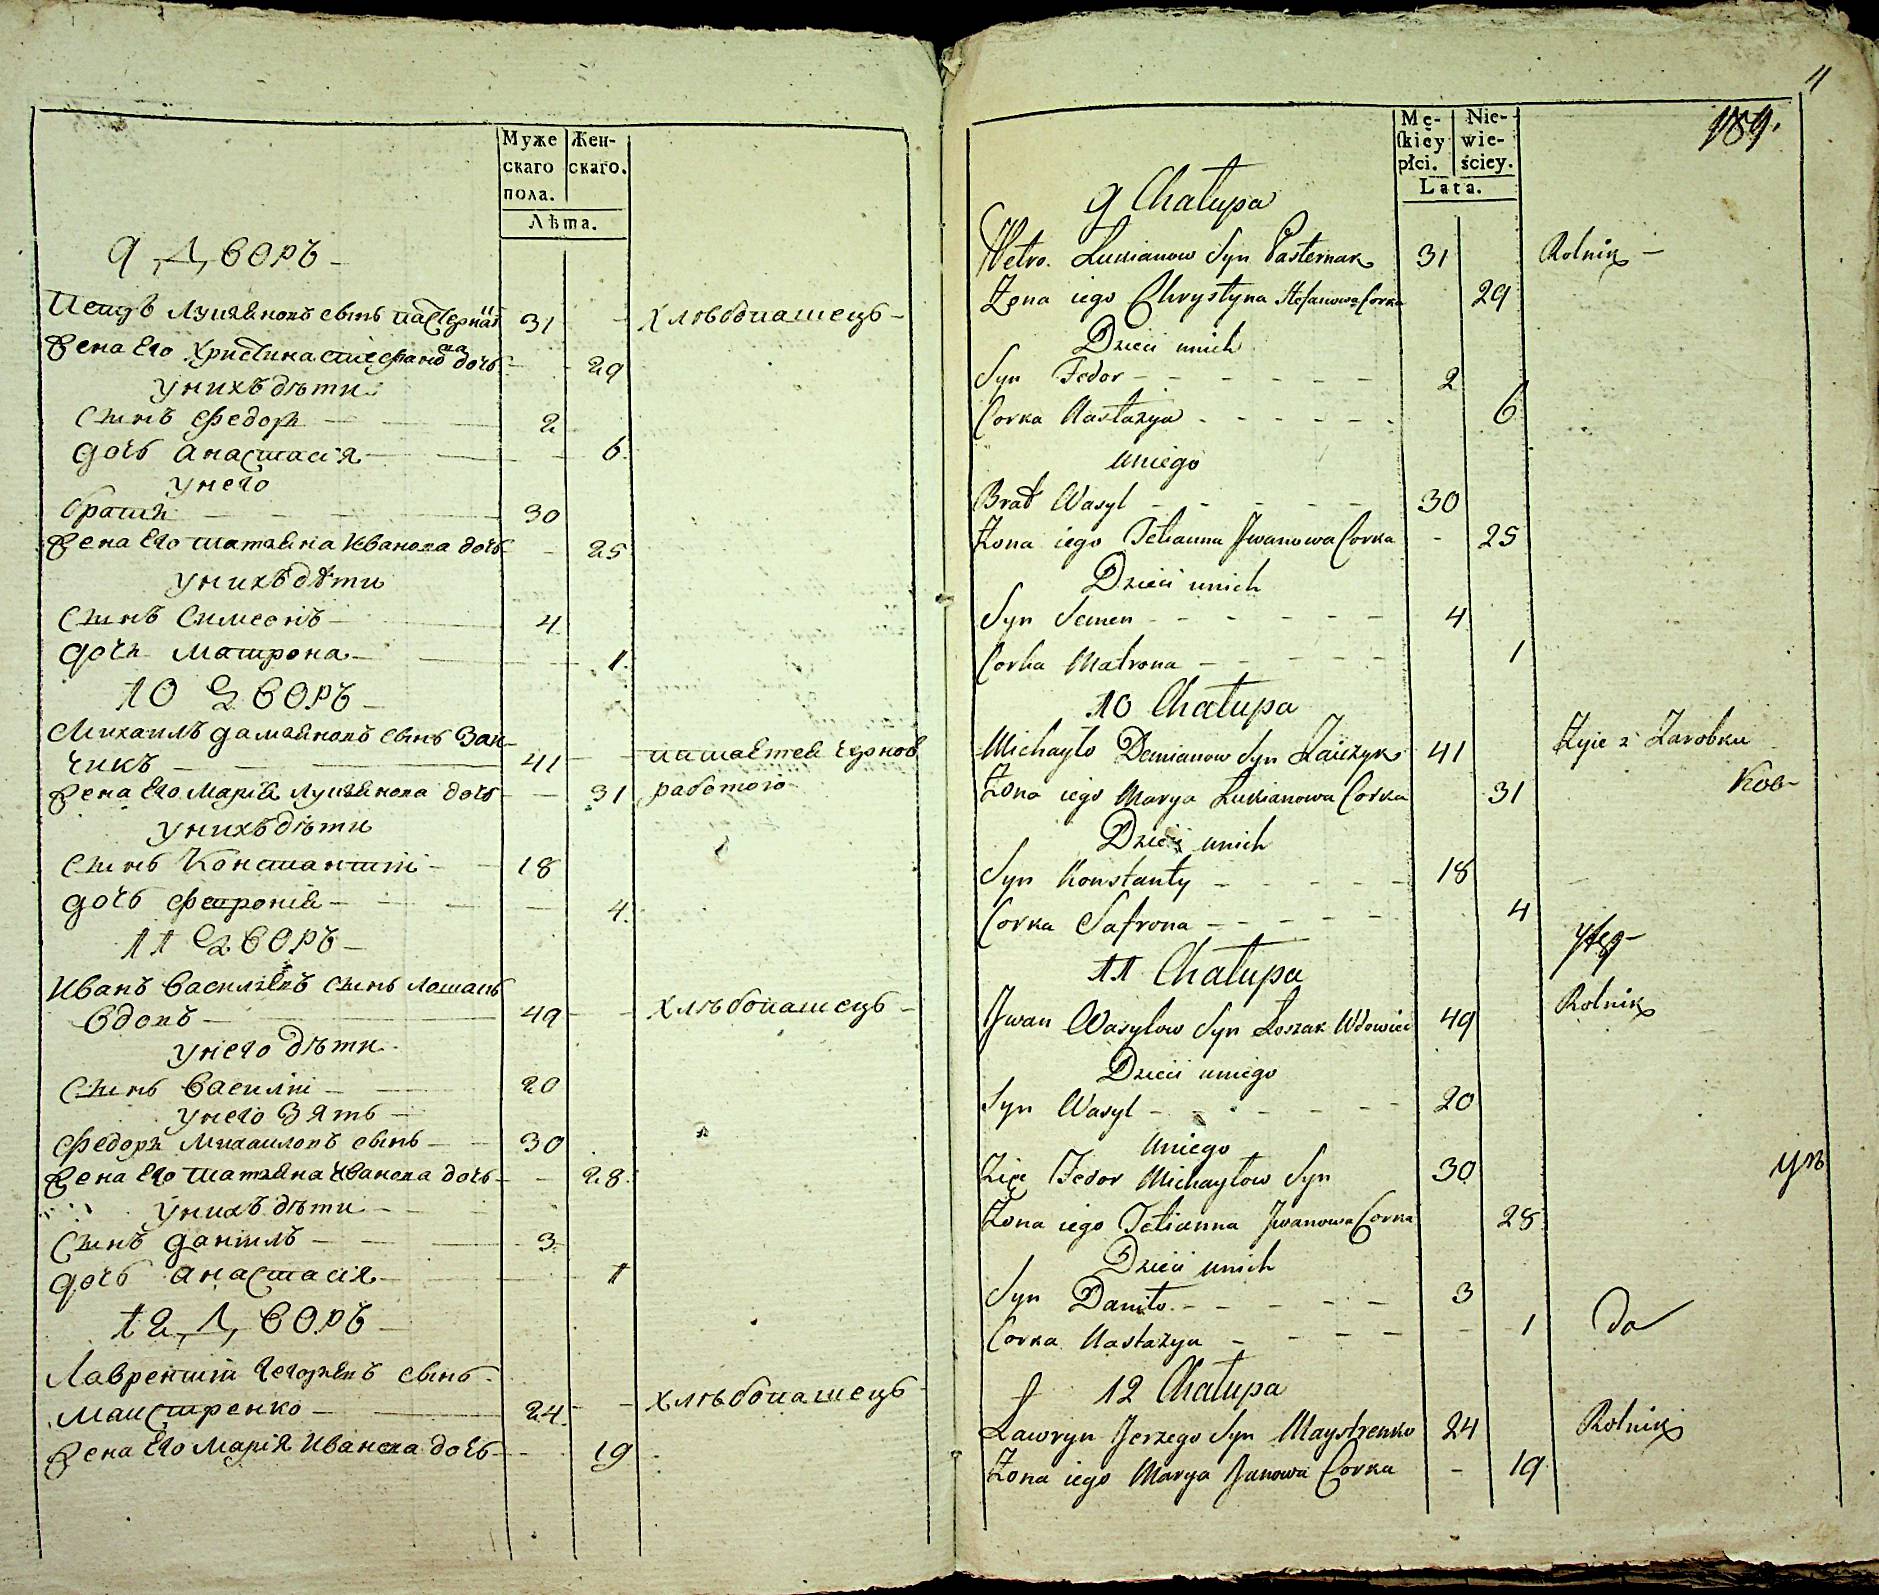 Муже
скаго
пола.
Жен-
скаго.
Лѣта.
9 ДВОРЪ
Петръ Лукіяновъ сынъ пастернак 31 хлѣбопашецъ
Жена Его Христина стефанова дочь 29
у нихъ дѣти
Сынъ Федоръ 2
дочь анастасія 6
у него
братъ 30
Жена Его татіяна Иванова дочь 25
у нихъ дѣти
Сынъ Симеонъ 4
дочь Матрона 1
10 ДВОРЪ
Михаилъ даміяновъ сынъ Заи-
чикъ 41 питается чорною
Жена Его Марія Лукіянова дочь 31 работою
у нихъ дѣти
сынъ Константій 18
дочь Фетронія 4
11 ДВОРЪ
Иванъ Василіевъ сынъ лошакъ
Вдовъ 49 хлѣбопашецъ
у него дѣти
сынъ Василій 20
у него Зять
Федоръ Михаиловъ сынъ 30
Жена Его татіяна Иванова дочь 28
у нихъ дѣти
Сынъ даніилъ 3
дочь анастасія 1
12 ДВОРЪ
Лаврентій Егоріевъ сынъ
Маистренко 24 хлѣбопашецъ
Жена Его Марія Иванова дочь 19
4
189.
Mę-
ſkiey
płci.
Nie-
wie-
ściey.
Lata.
9 Chałupa
Petro Łukianow Syn Pasternak 31 Rolnik
Żona iego Chrystyna Stefanowa Corka 29
Dzieci unich
Syn Fedor 2
Corka Nastazya 6
uniego
Brat Wasyl 30
Żona iego Tetianna Jwanowa Corka 25
Dzieci unich
Syn Semen 4
Corka Matrona 1
10 Chałupa
Michayło Demianow Syn Zaiczyk 41 Żyie z Zarobku
Żona iego Marya Łukianowa Corka 31
Dzieci unich
Syn Konstanty 18
Corka Safrona 4
11 Chałupa
Jwan Wasylow Syn Łoszak Wdowiec 49 Rolnik
Dzieci uniego
Syn Wasyl 20
uniego
Zięć Fedor Michayłow Syn 30
Żona iego Tetianna Jwanowa Corka 28
Dzieci unich
Syn Daniło 3
Corka Nastazya 1
12 Chałupa
Ławryn Jerzego Syn Maystrenko 24 Rolnik
Żona iego Marya Janowa Corka 19